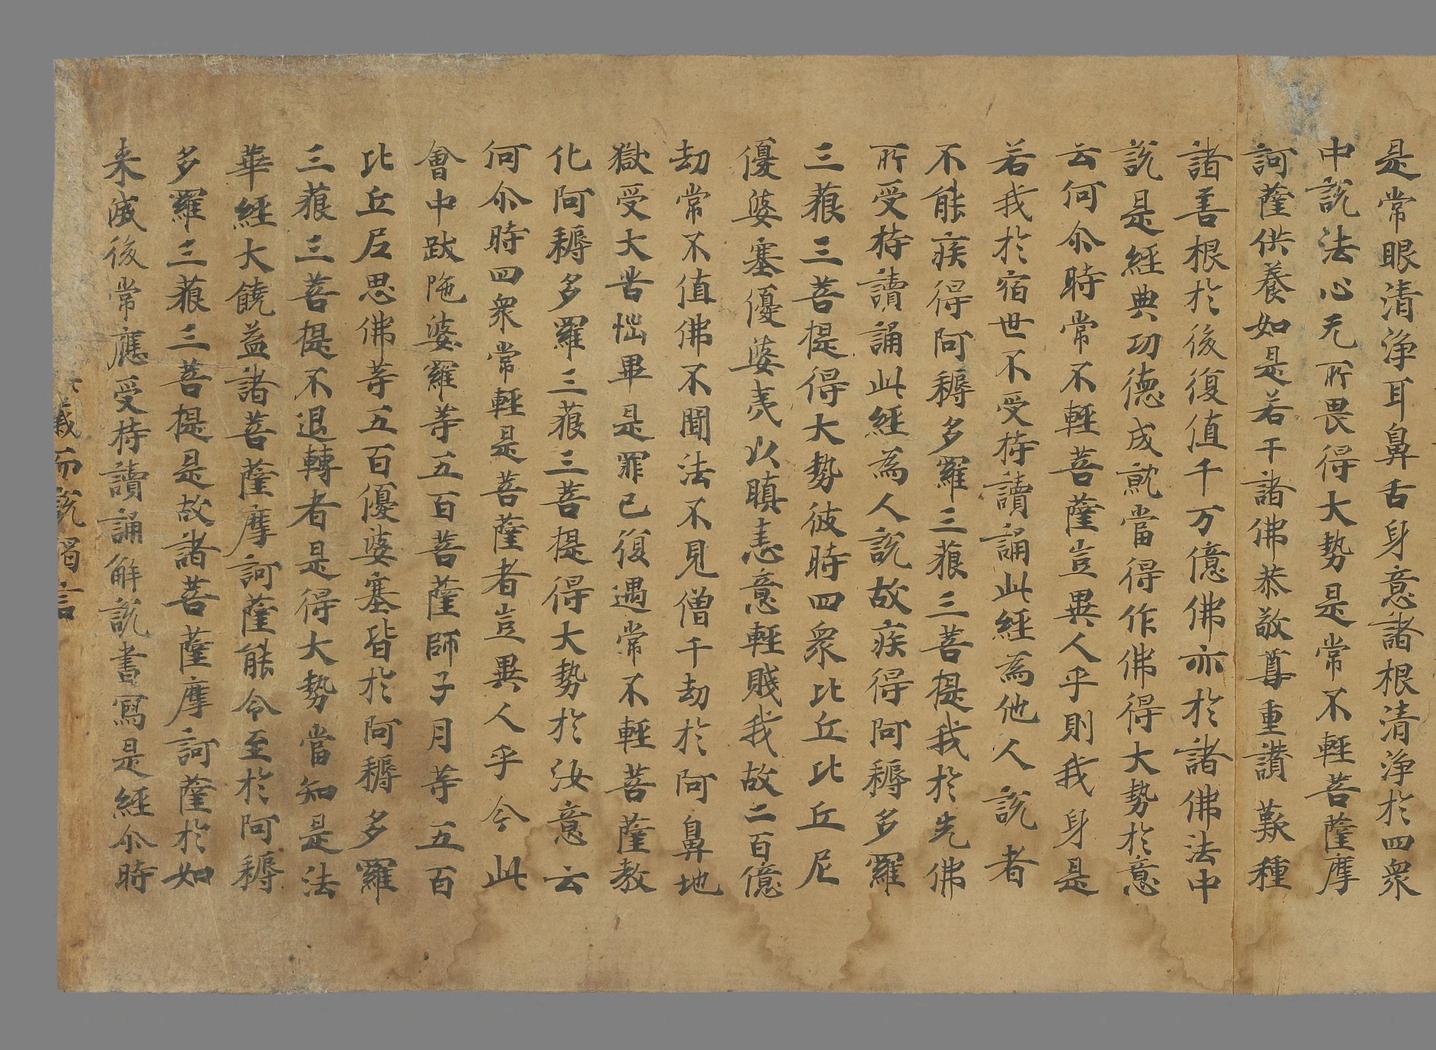 是常眼清淨耳鼻舌身意諸根清淨於四衆
中說法心无所畏得大勢是常不輕菩薩摩
訶薩供養如是若干諸佛恭敬尊重讚歎種
諸善根於後復值千万億佛亦於諸佛法中
說是經典功德成就當得作佛得大勢於意
云何尒時常不輕菩薩豈異人乎則我身是
若我於宿世不受持讀誦此經為他人說者
不能疾得阿耨多羅三藐三菩提我於先佛
所受持讀誦此經為人說故疾得阿耨多羅
三藐三菩提得大勢彼時四衆比丘比丘尼
優婆塞優婆夷以瞋恚意輕賤我故二百億
劫常不值佛不聞法不見僧千劫於阿鼻地
獄受大苦惱畢是罪已復遇常不輕菩薩教
化阿耨多羅三藐三菩提得大勢於汝意云
何尒時四衆常輕是菩薩者豈異人乎今此
會中跋陁婆羅等五百菩薩師子月等五百
比丘尼思佛等五百優婆塞皆於阿耨多羅
三藐三菩提不退轉者是得大勢當知是法
華經大饒益諸菩薩摩訶薩能令至於阿耨
多羅三藐三菩提是故諸菩薩摩訶薩於如
来滅後常應受持讀誦解說書寫是經尒時
義而說偈言